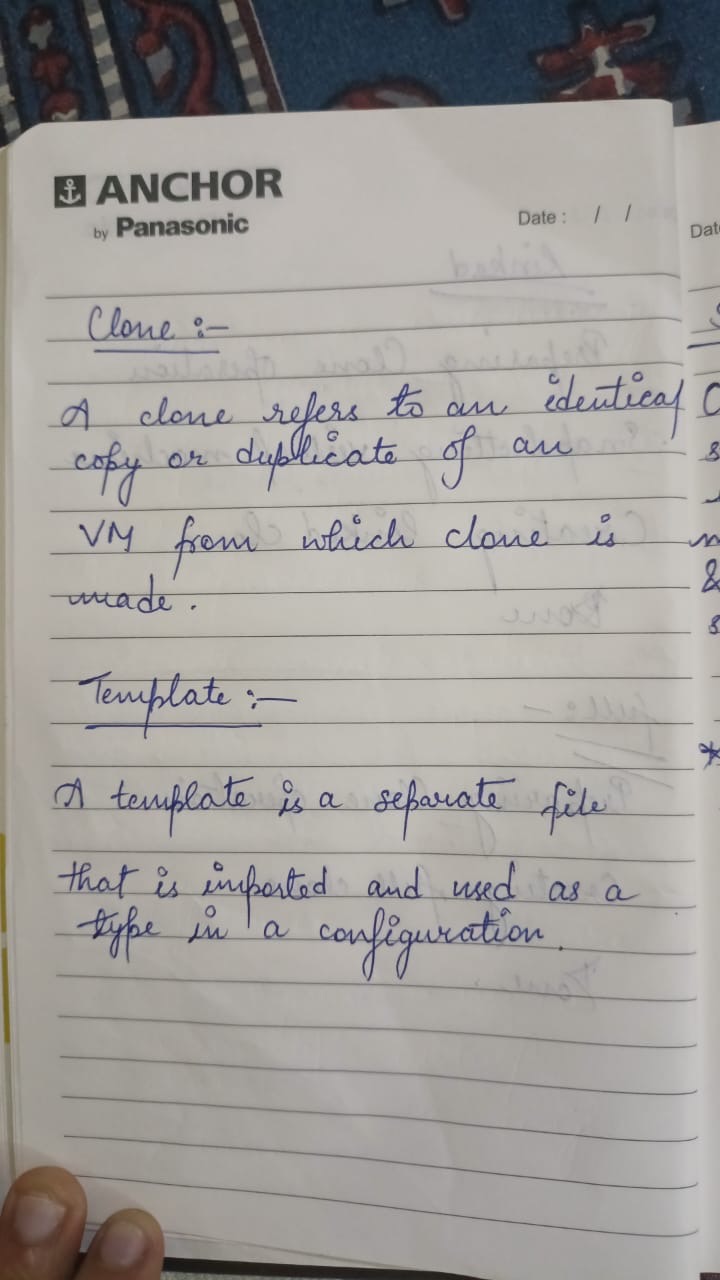 ANCHOR
by Panasonic
Date : / /
Dat
Clone :-
A clone refers to an identical
copy or duplicate of an
VM from which clone is
made.
Template :-
A template is a separate file
that is imported and used as a
type in a configuration.